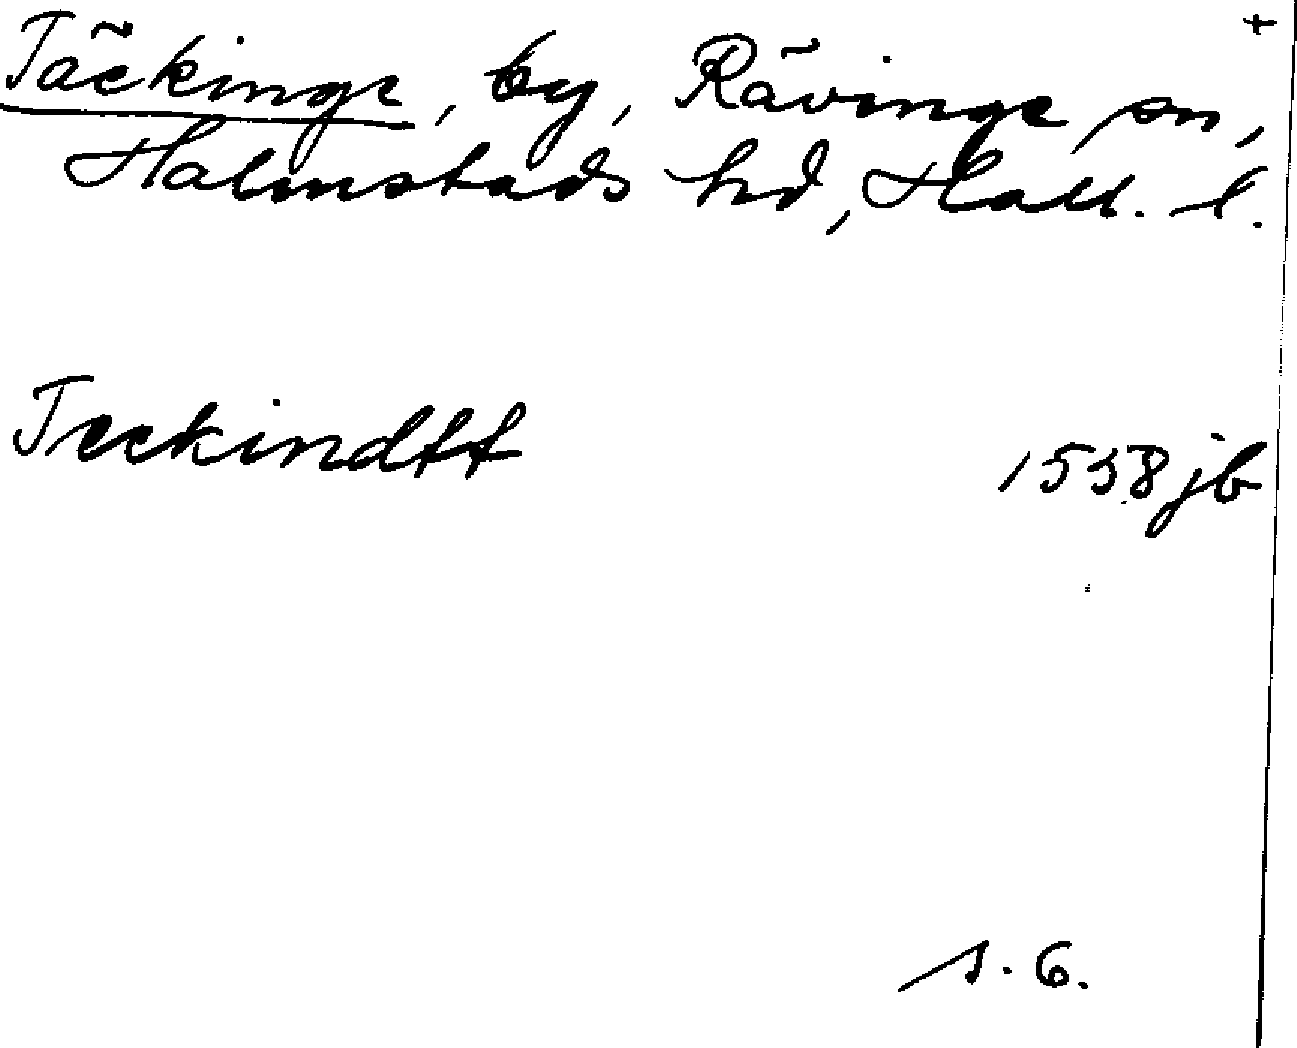 +
Täckinge, by, Rävinge sn,
Halmstads hd, Hall. l.
Teckindtt 1558 jb
s. 6.